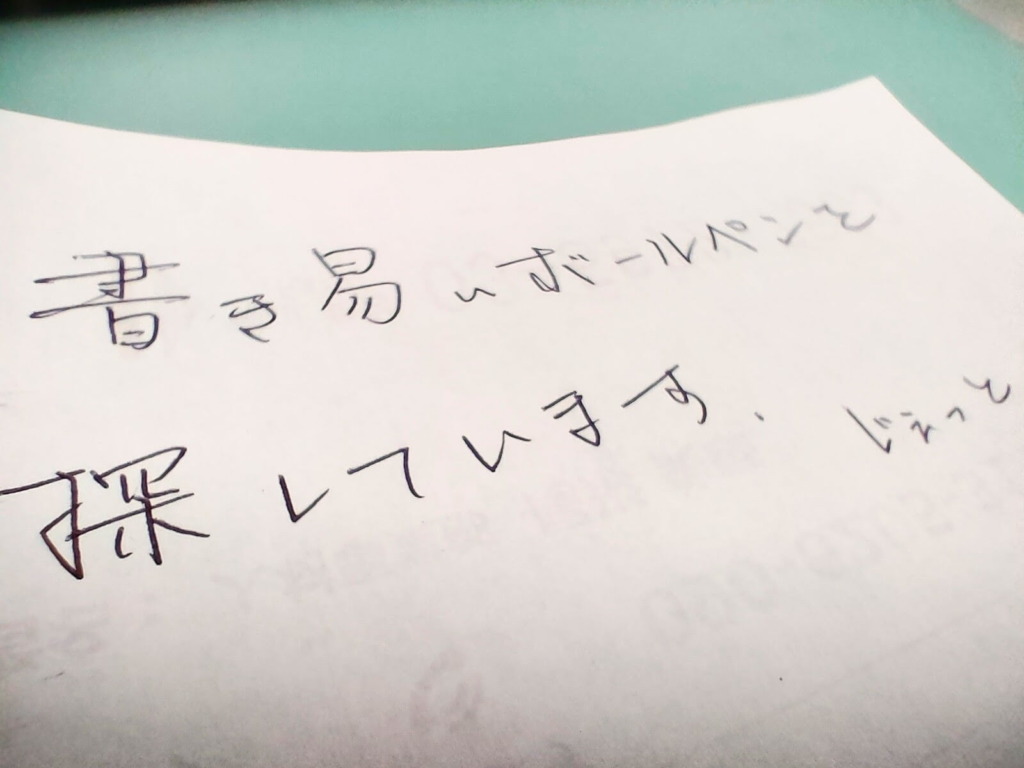 書き易いボールペンを
探しています. じぇっと